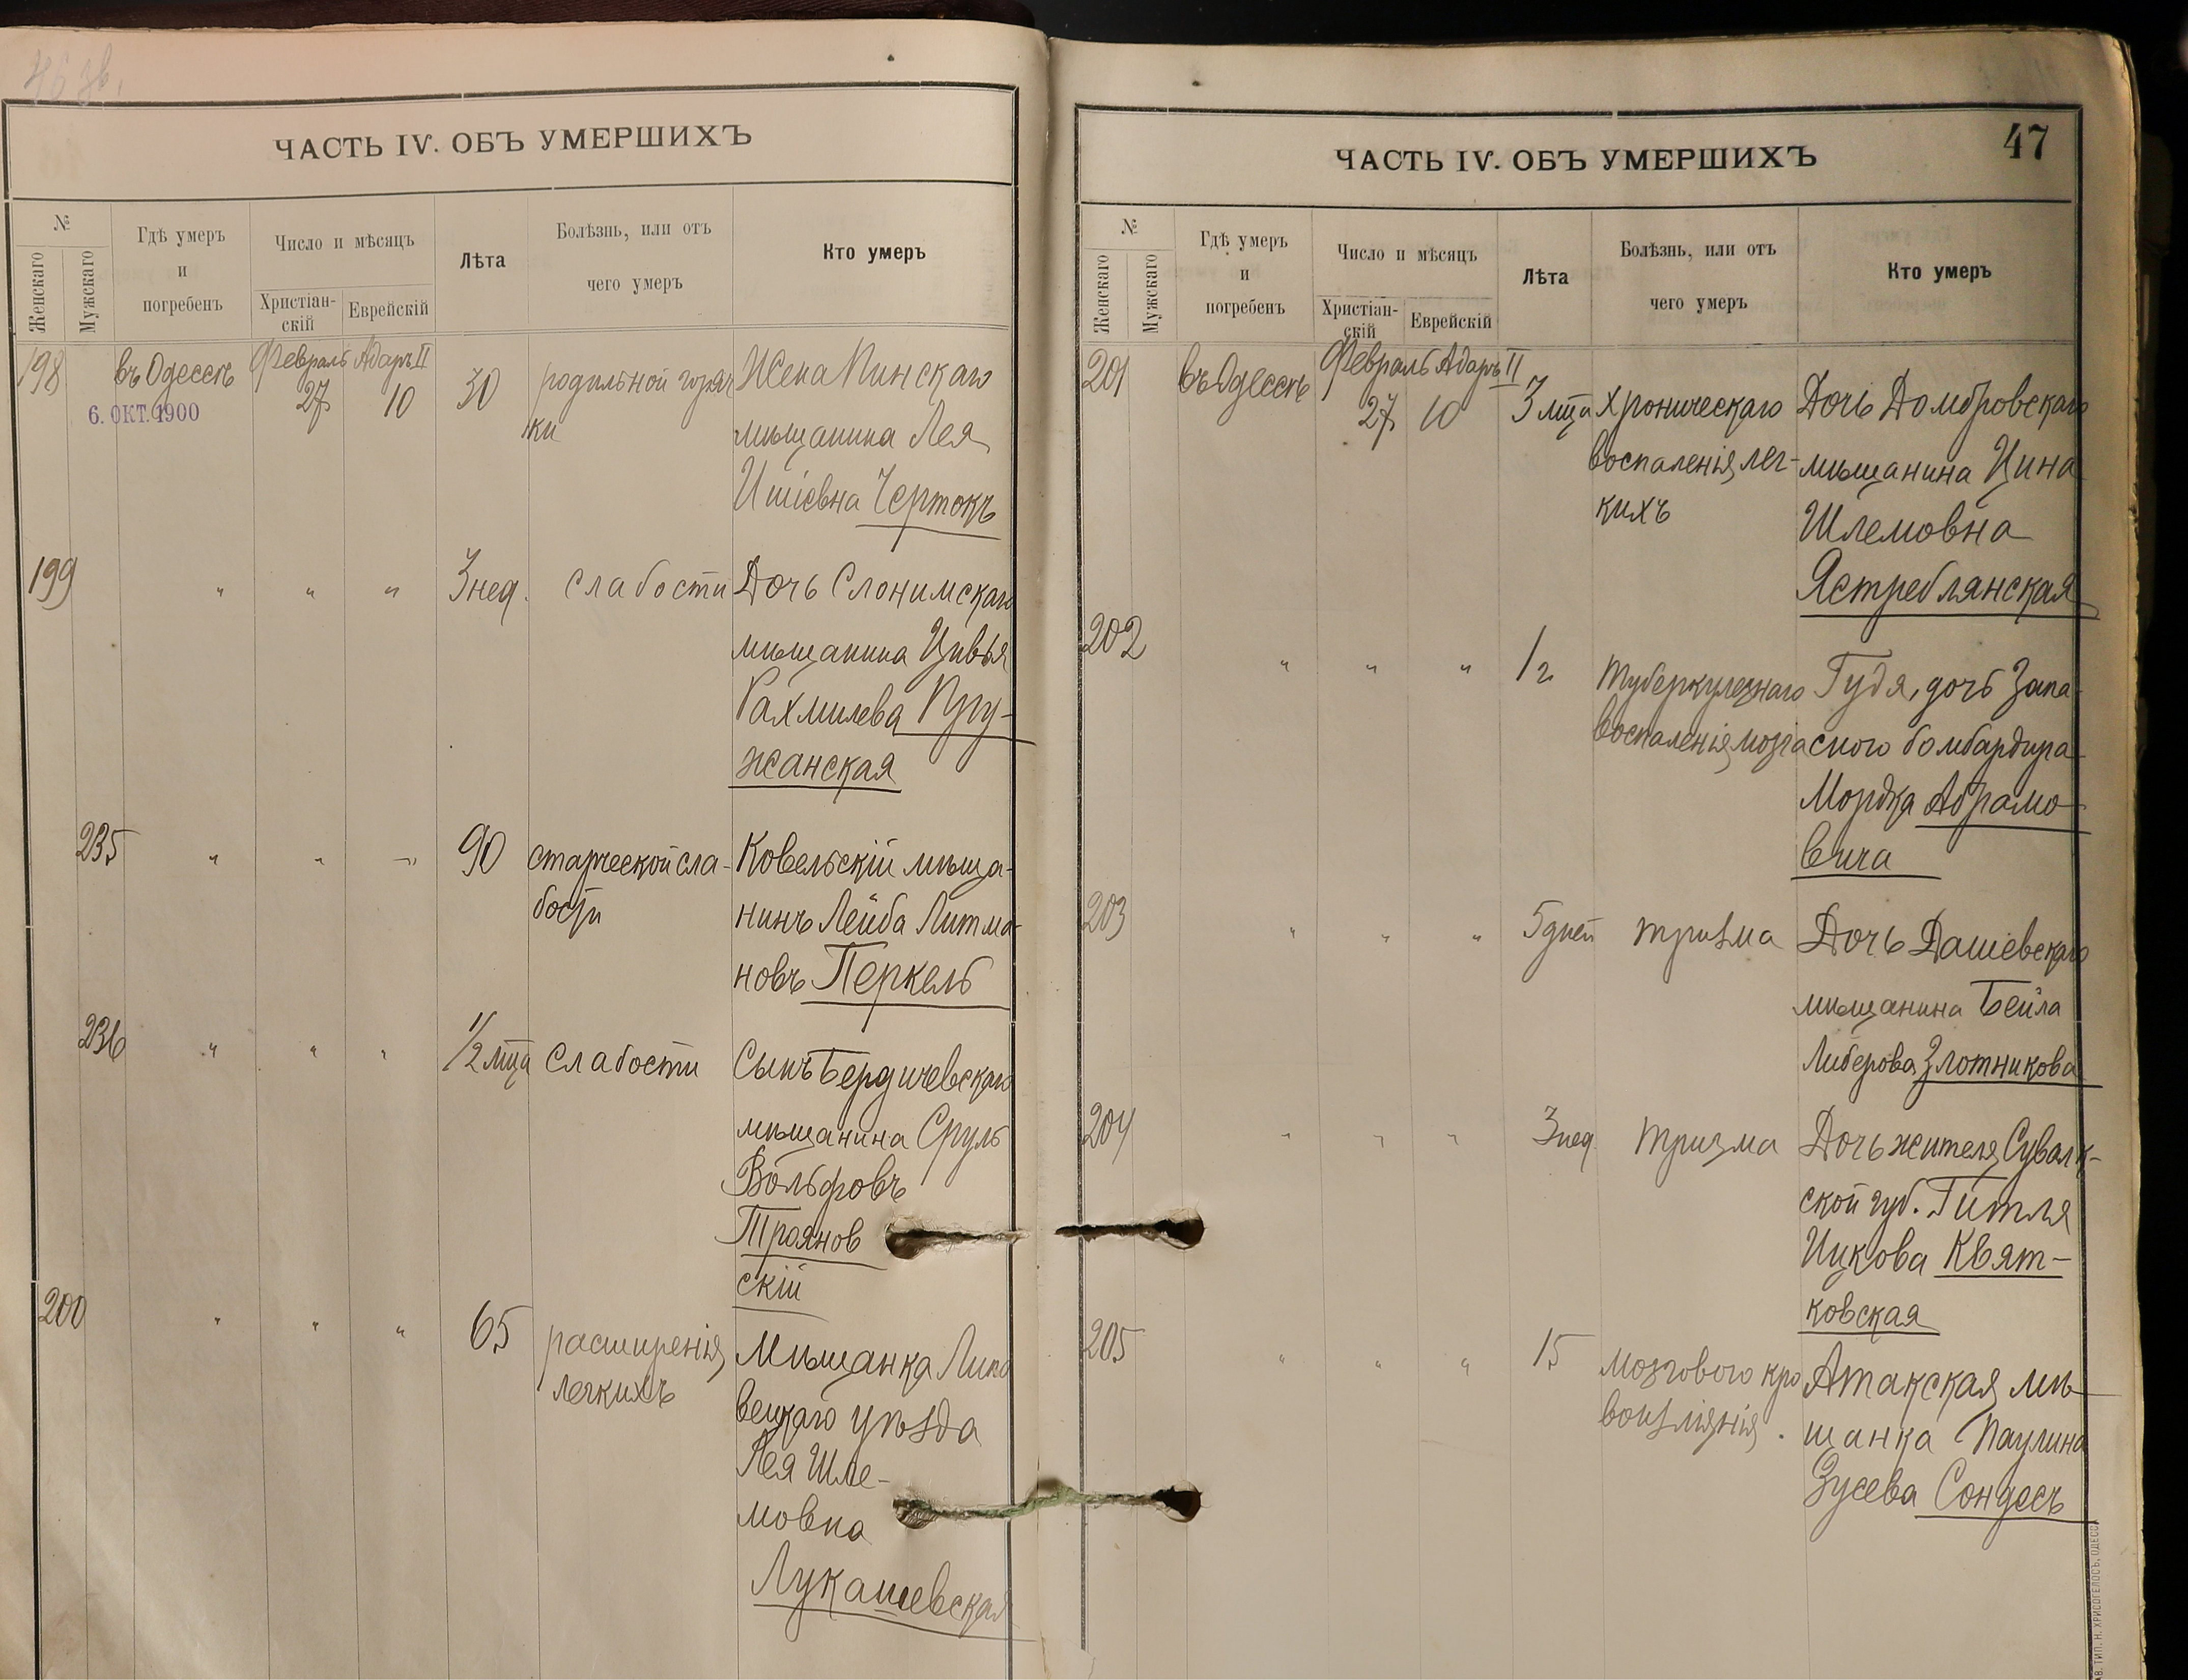 46 зв.
ЧАСТЬ IV. ОБЪ УМЕРШИХЪ
№
Женскаго
Мужскаго
Гдѣ умеръ
и
погребенъ
Число и мѣсяцъ
Христіан-
скій
Еврейскій
Лѣта
Болѣзнь, или отъ
чего умеръ
Кто умеръ
198 въ Одессѣ Февраль Адаръ II 30 родильной горяч Жена Пинскаго
6. ОКТ. 1900 27 10 ки мѣщанина Лея
Ишіевна Чертокъ
199 " " " 3 нед. слабости Дочь Слонимскаго
мѣщанина Цивья
Рахмилева Пру-
жанская
235 " " " 90 старческой сла- Ковельскій мѣща-
бости нинъ Лейба Литма-
новъ Перкель
236 " " " 1/2 мца слабости Сынъ Бердичевскаго
мѣщанина Сруль
Вольфовъ
Трояновскій
200 " " " 65 расширенія Мѣщанка Липо
легкихъ вецкаго уѣзда
Лея Шле-
мовна
Лукашевская
ЧАСТЬ IV. ОБЪ УМЕРШИХЪ
47
№
Женскаго
Мужскаго
Гдѣ умеръ
и
погребенъ
Число и мѣсяцъ
Христіан-
скій
Еврейскій
Лѣта
Болѣзнь, или отъ
чего умеръ
Кто умеръ
201 въ Одессѣ Февраль Адаръ II
27 10 3 мца Хроническаго Дочь Домбровскаго
воспаленія лег- мѣщанина Цина
кихъ Шлемовна
Ястреблянская
202 " " " 1 г. туберкулезнаго Гудя, дочь Запа-
воспаленія мозга сного бомбардира
Мордка Абрамо-
вича
203 " " " 5 дней тризма Дочь Дашевскаго
мѣщанина Бейла
Либерова Злотникова
204 " " " 3 нед. тризма Дочь жителя Сувалк-
ской губ. Гитля
Ицкова Квят-
ковская
205 " " " 15 мозгового кро Атакская мѣ-
воизліянія. щанка Паулина
Зусева Сондесъ